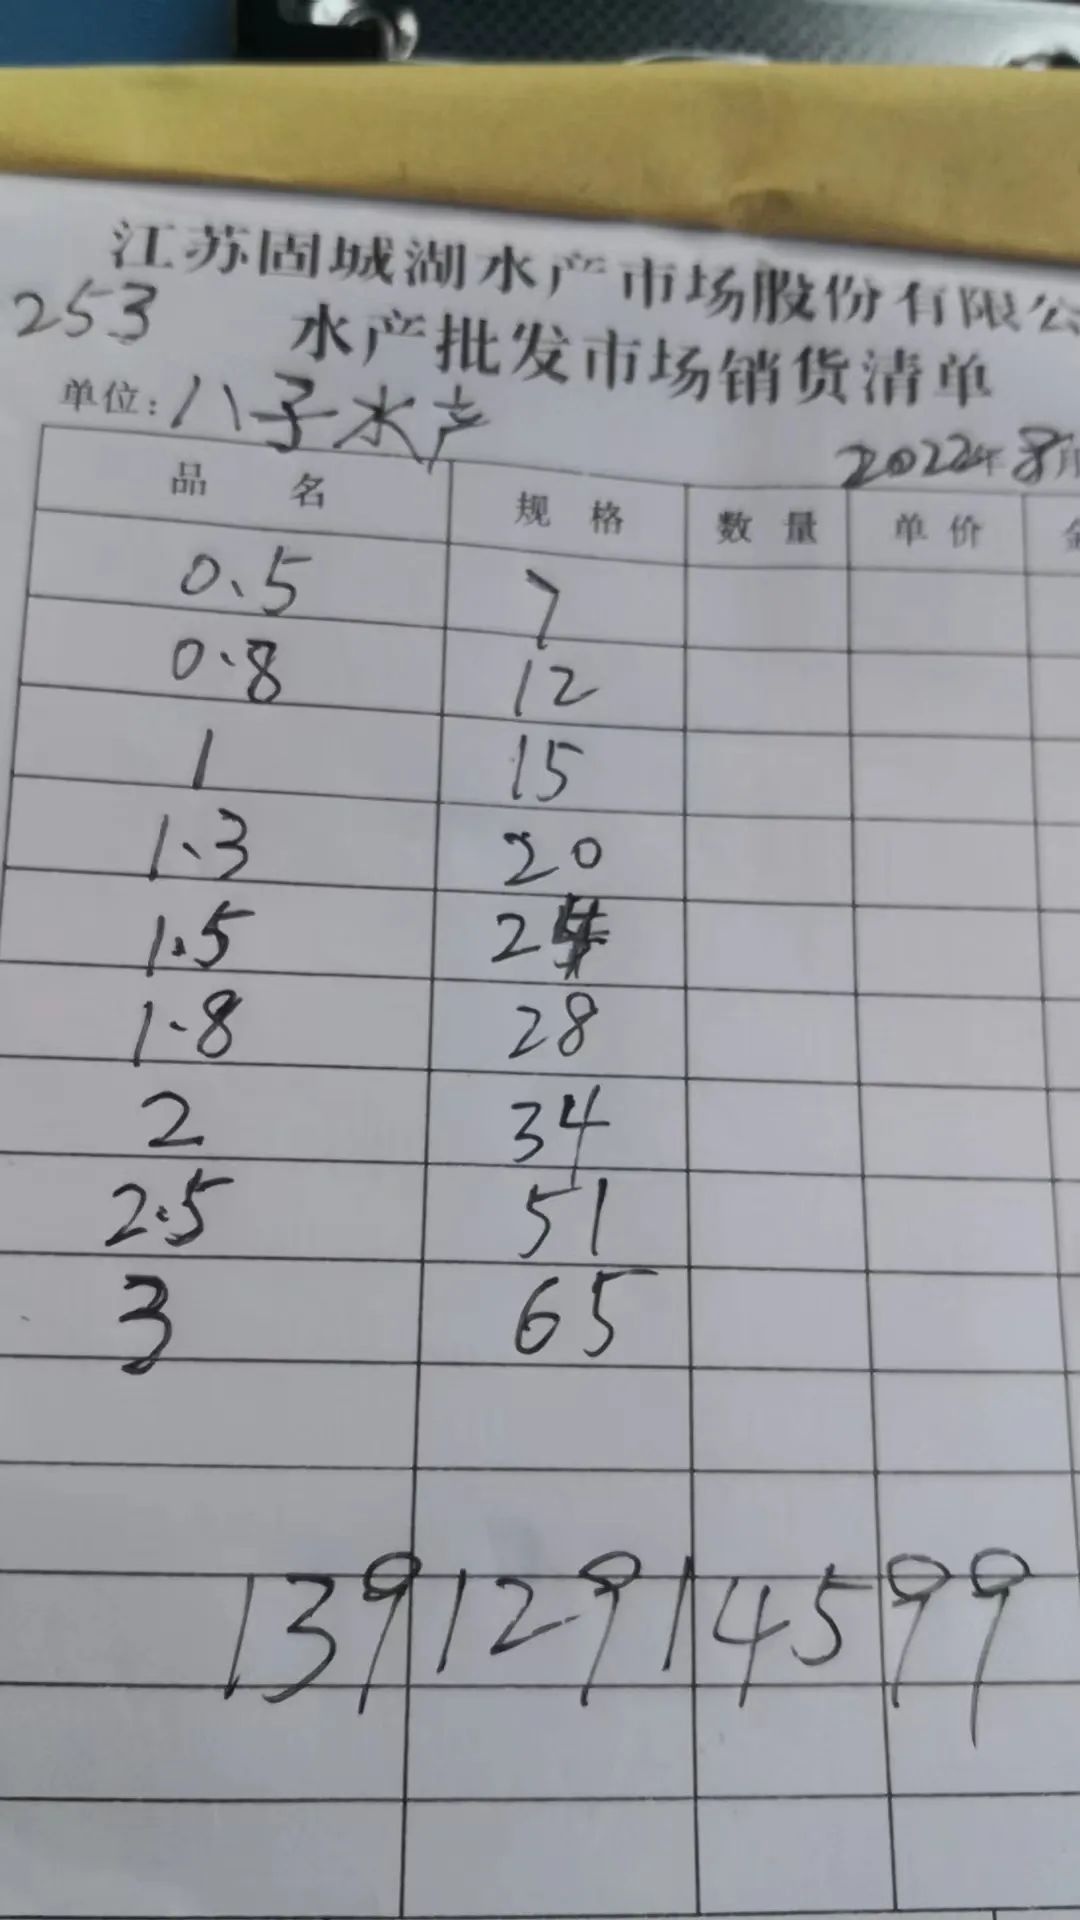 江苏固城湖水产市场股份有限公
253 水产批发市场销货清单
单位：八子水产
2022年8月
品名 规格 数量 单价 金
0.5 7
0.8 12
1 15
1.3 20
1.5 2
1.8 28
2 34
2.5 51
3 65
13912914599